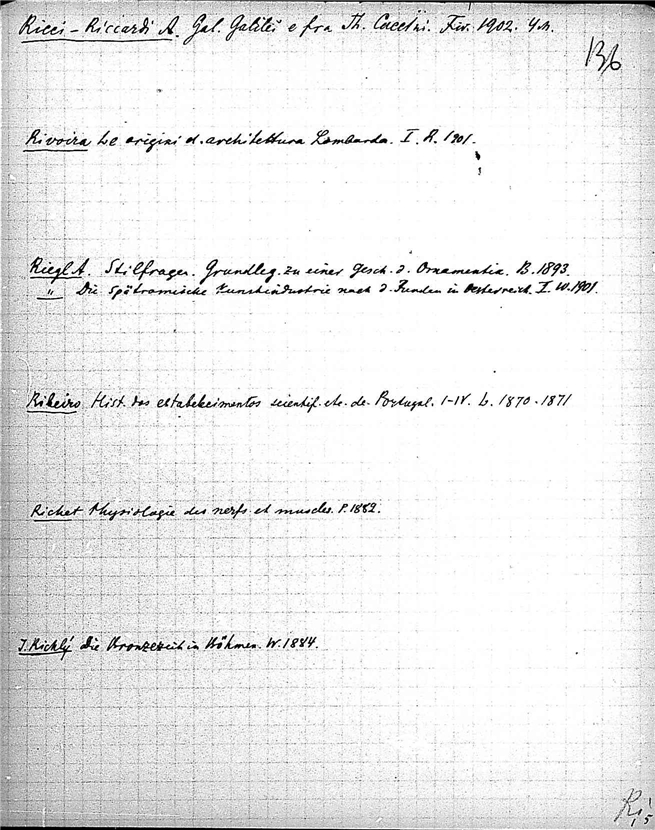 Ricci-Riccardi A. Gal. Galilei e fra Th. Caccini. Fir. 1902. 4.n.
136
Rivoira Le origini d. architettura Lombarda. I. R. 1901.
Riegl A. Stilfragen. Grundleg. zu einer Gesch. d. Ornamentik. B. 1893.
" Die Spätromische Kunstindustrie nach d. Funden in Oesterreich. I. W. 1901
Ribeiro Hist. dos estabelecimentos scientif. etc. de Portugal. I-IV. L. 1870-1871
Richet Physiologie des nerfs et muscles. P. 1882.
J. Richlý Die Bronzezeit in Böhmen. W. 1884.
Ri